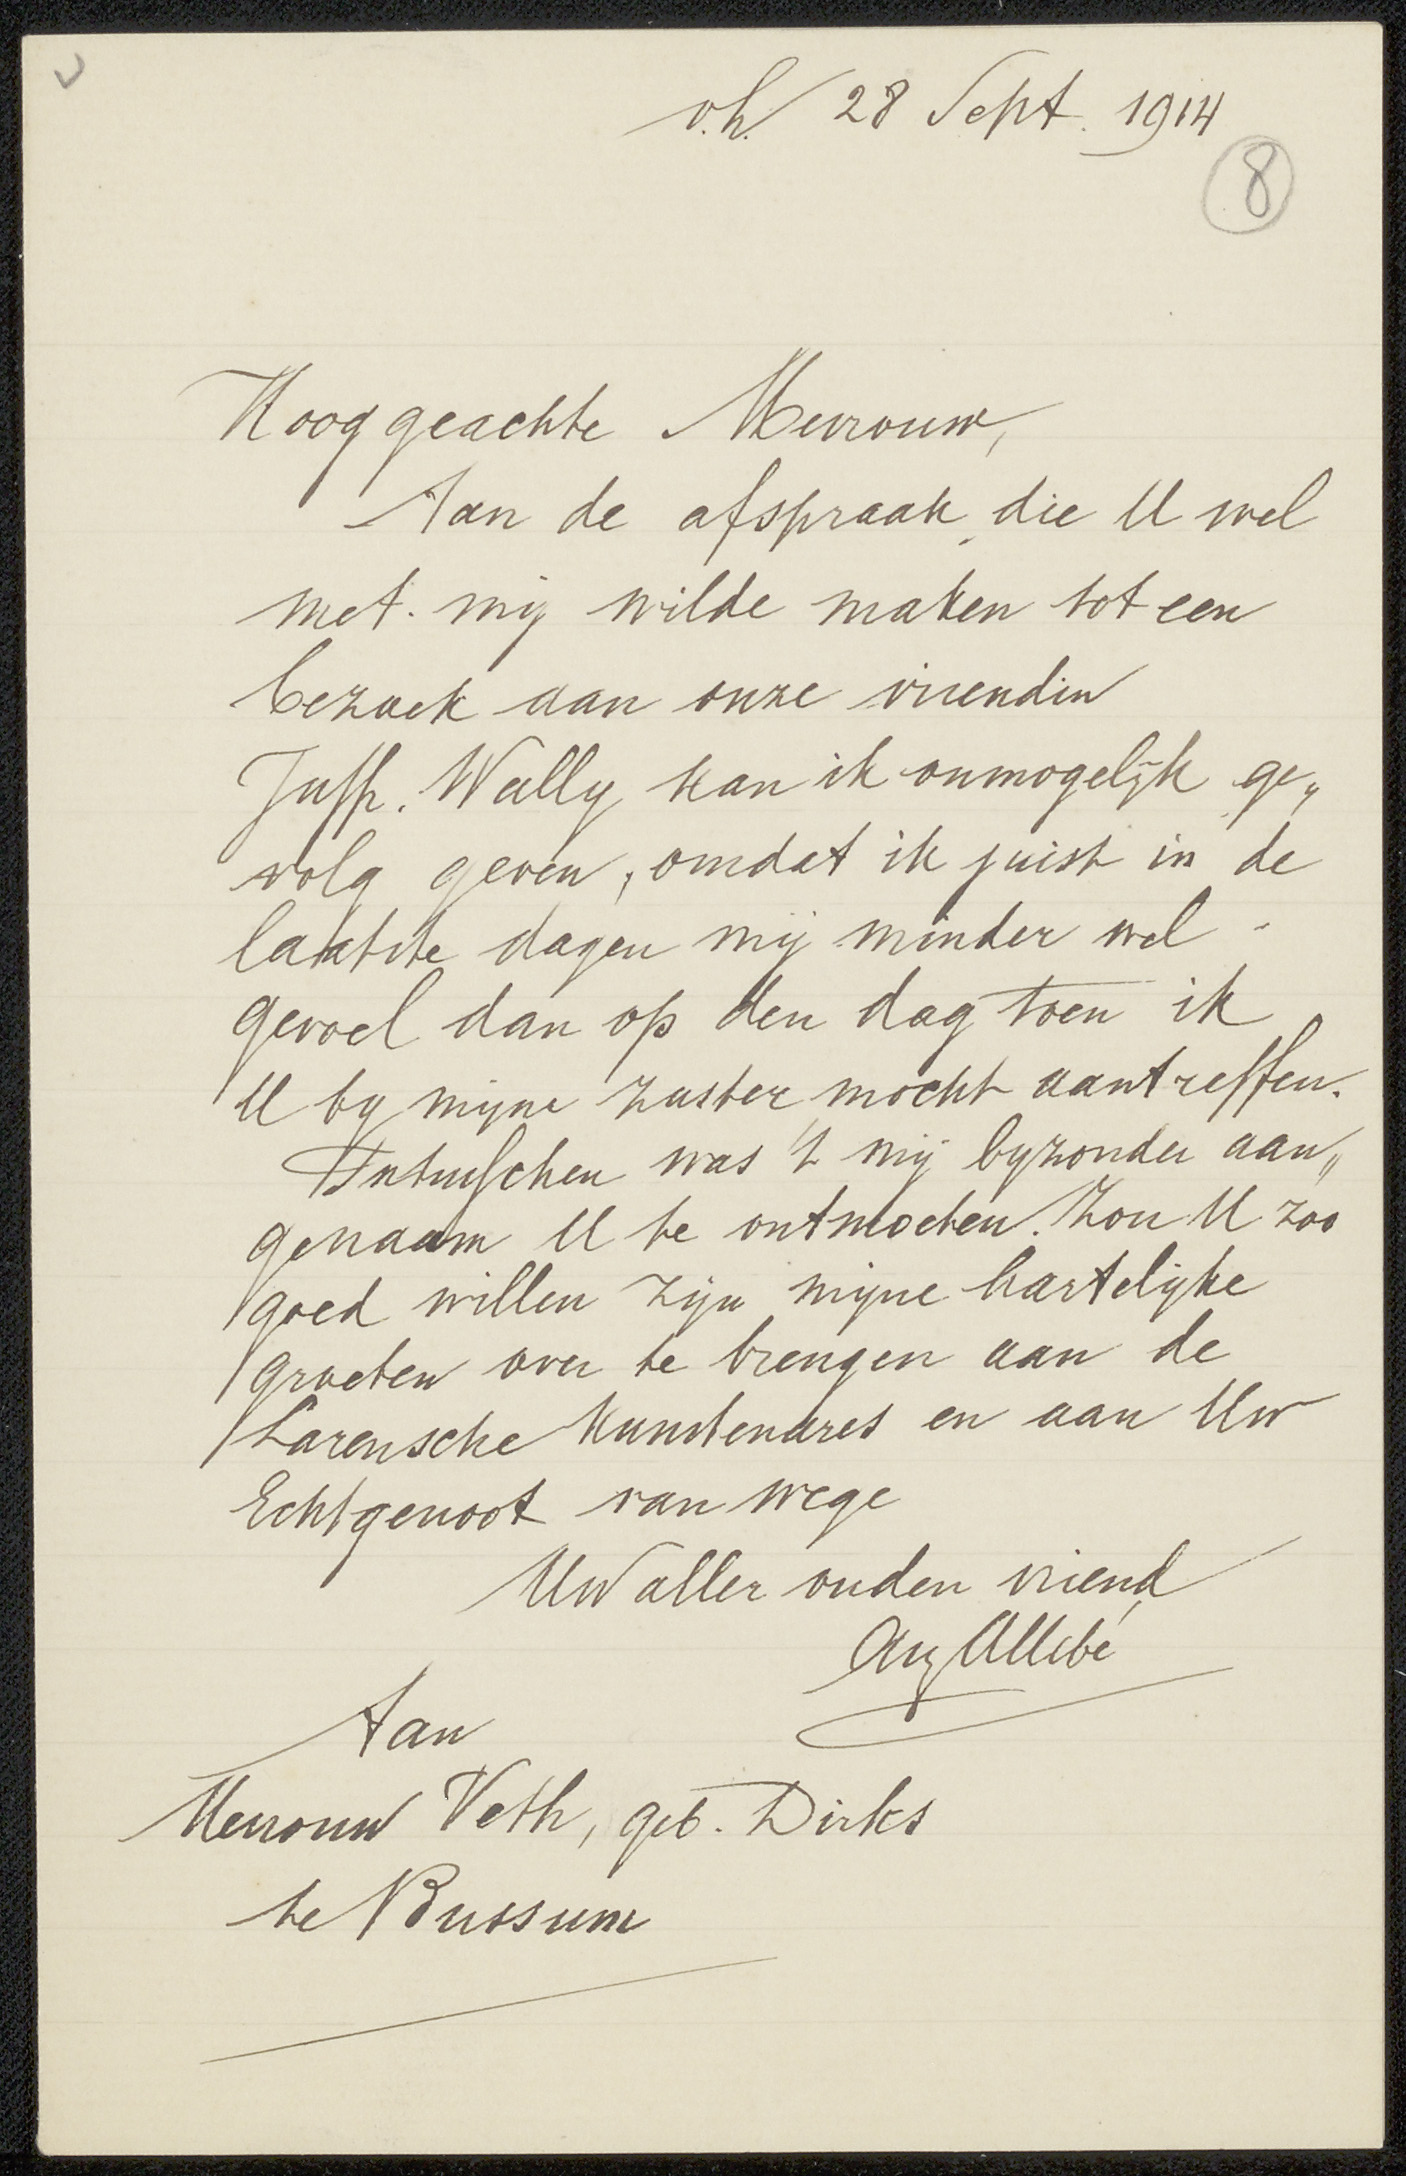 v.h. 28 Sept. 1914
8
Hooggeachte Mevrouw,
Aan de afspraak, die U wel
met mij wilde maken tot een
bezoek aan onze vriendin
Juffr. Wally kan ik onmogelijk ge„
volg geven, omdat ik juist in de
laatste dagen mij minder wel -
gevoel dan op den dag toen ik
U by mijne zuster mocht aantreffen.
Intusschen was 't mij byzonder aan„
genaam U te ontmoeten. Zou U zoo
goed willen zijn mijne hartelijke
groeten over te brengen aan de
Larensche Kunstenares en aan Uw
Echtgenoot van wege
Uw aller ouden vriend
Aug Allebé
Aan
Mevrouw Veth, geb. Dirks
te Bussum